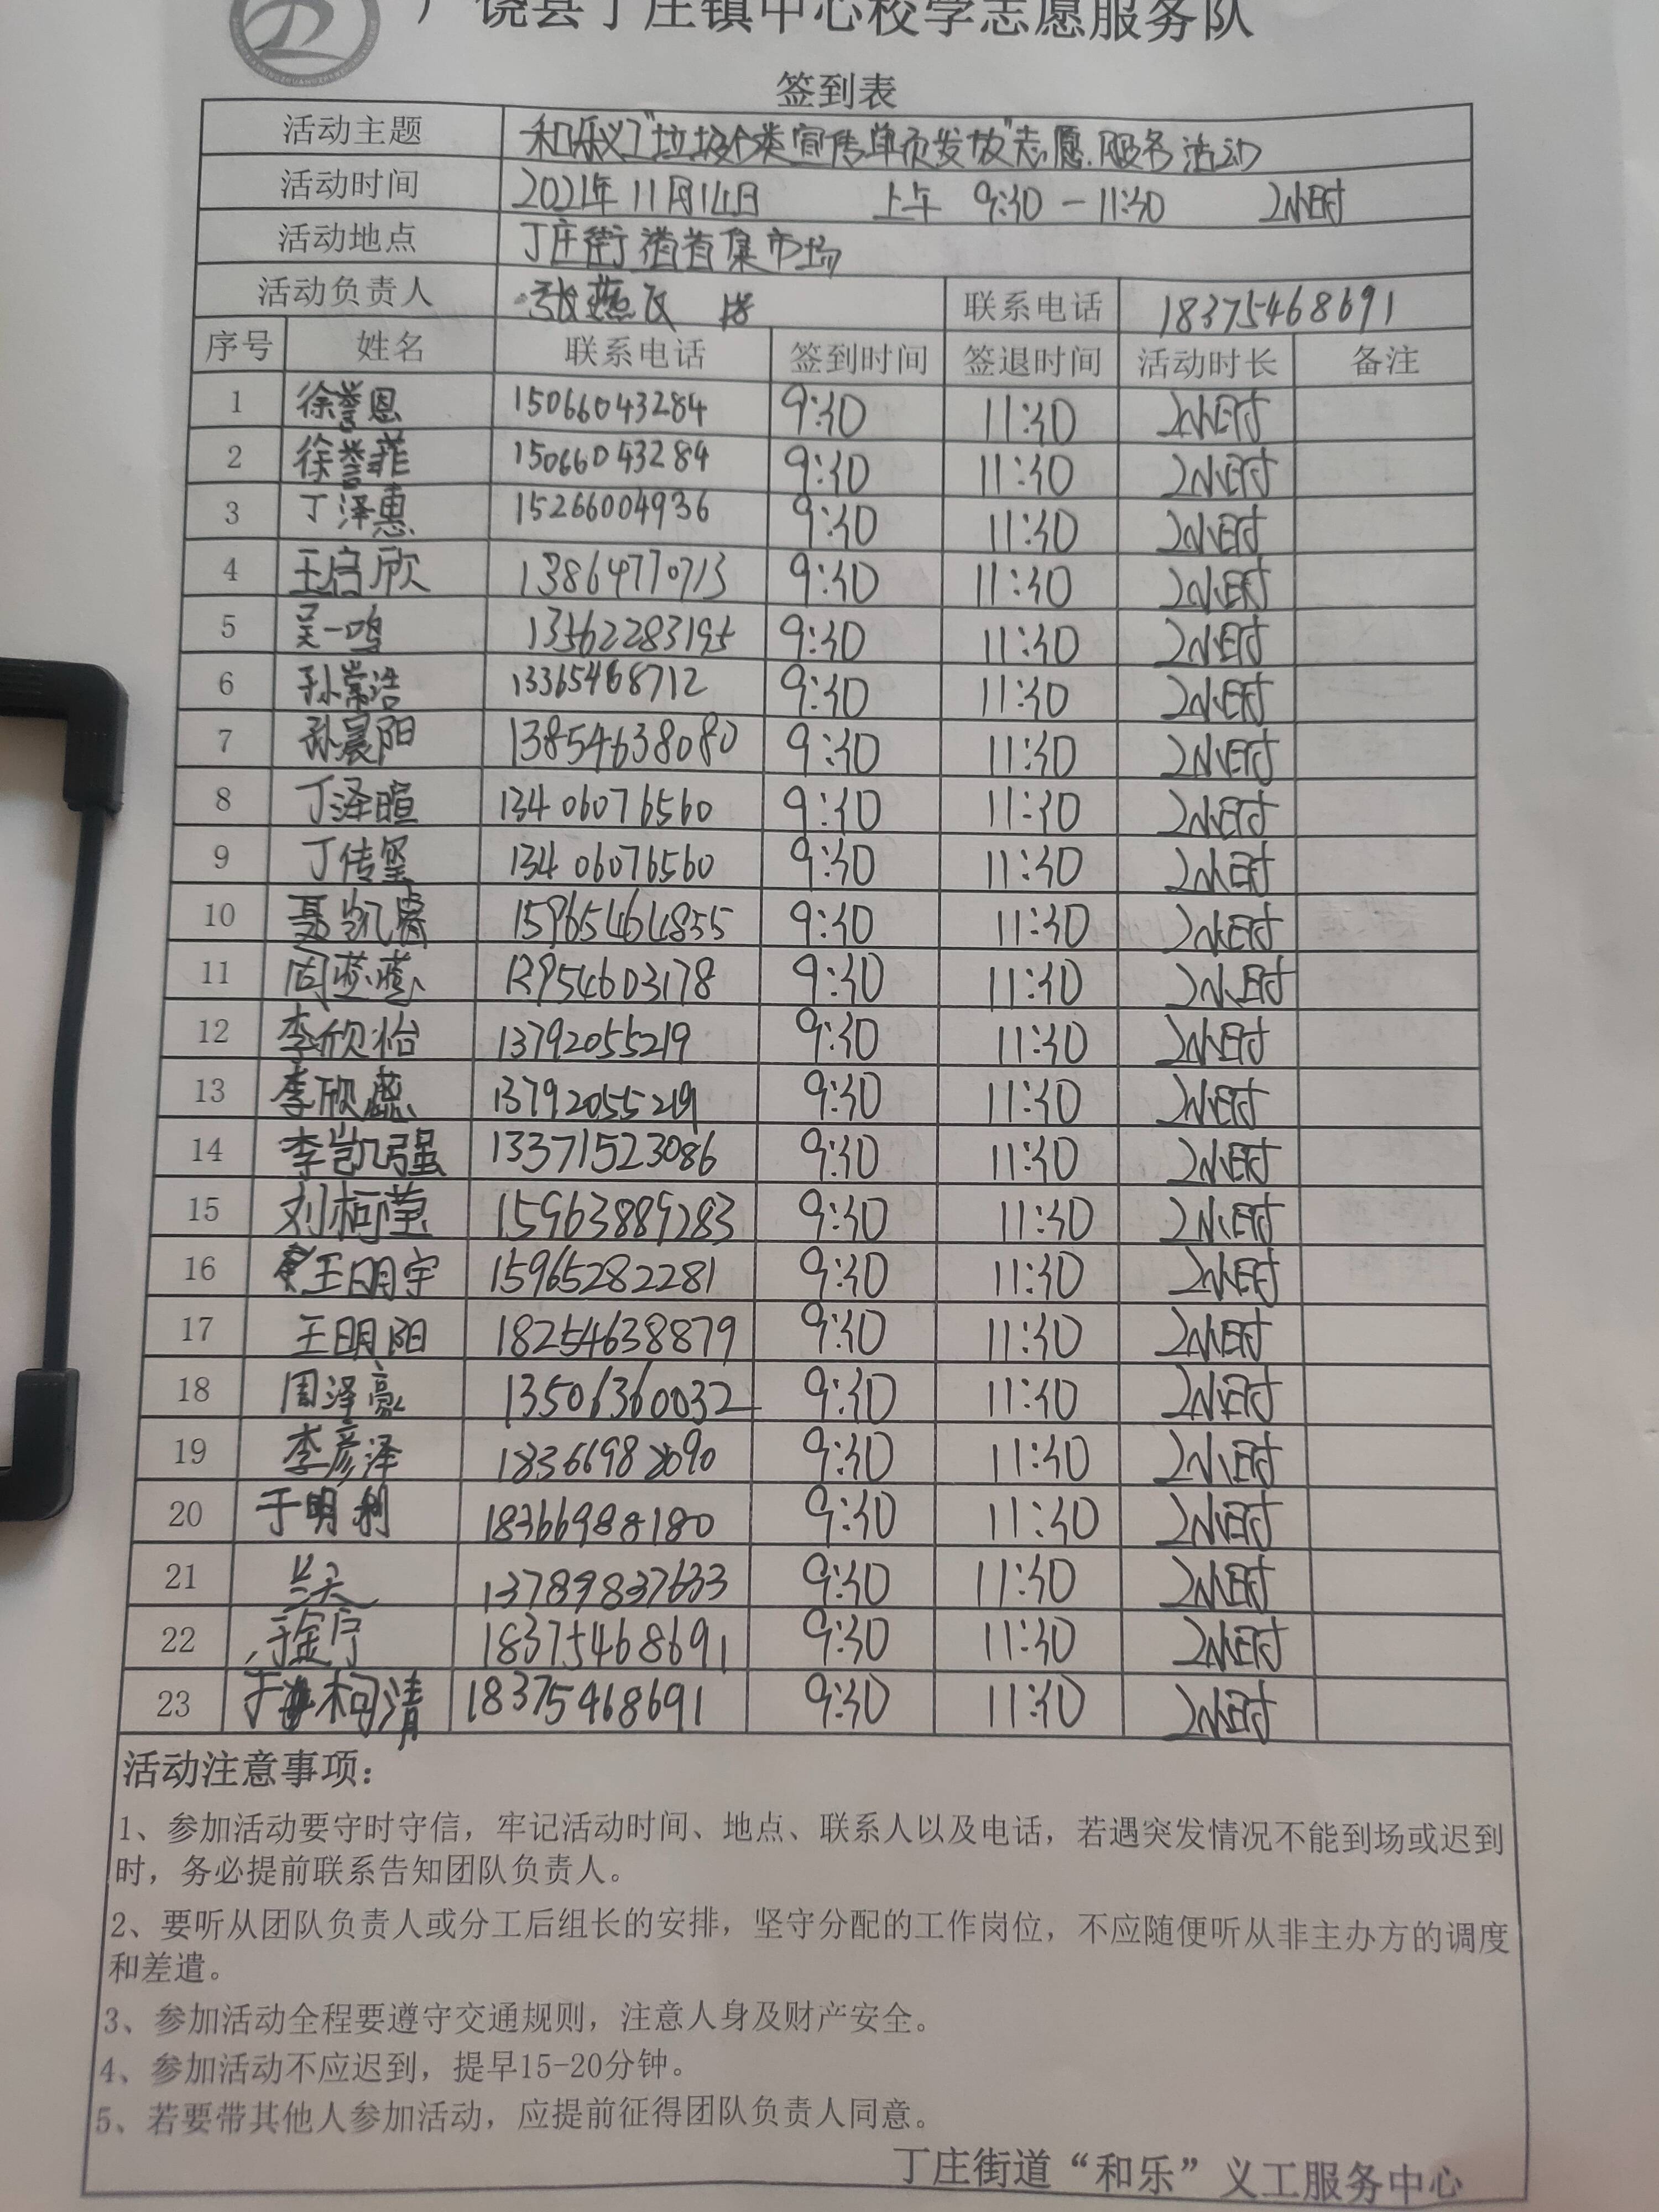 广饶县丁庄镇中心校学志愿服务队
签到表
活动主题 和乐义工"垃圾分类宣传单页发放"志愿服务活动
活动时间 2021年11月14日 上午 9:30-11:30 2小时
活动地点 丁庄街道首集市场
活动负责人 张燕飞 联系电话 18375468691
序号 姓名 联系电话 签到时间 签退时间 活动时长 备注
1 徐誉恩 15066043284 9:30 11:30 2小时
2 徐誉菲 15066043284 9:30 11:30 2小时
3 丁泽惠 15266004936 9:30 11:30 2小时
4 王启欣 13864770713 9:30 11:30 2小时
5 吴一鸣 13562283195 9:30 11:30 2小时
6 孙常浩 13365468712 9:30 11:30 2小时
7 孙晨阳 13854638080 9:30 11:30 2小时
8 丁泽暄 13406076560 9:30 11:30 2小时
9 丁传玺 13406076560 9:30 11:30 2小时
10 聂凯睿 15965464855 9:30 11:30 2小时
11 周蓝蓝 13954603178 9:30 11:30 2小时
12 李欣怡 13792055219 9:30 11:30 2小时
13 李欣蕊 13792055219 9:30 11:30 2小时
14 李凯强 13371523086 9:30 11:30 2小时
15 刘柯莹 15963889283 9:30 11:30 2小时
16 王明宇 15965282281 9:30 11:30 2小时
17 王明阳 18254638879 9:30 11:30 2小时
18 周泽豪 13506360032 9:30 11:30 2小时
19 李彦泽 18366982090 9:30 11:30 2小时
20 于明利 18366988180 9:30 11:30 2小时
21 兰天 13789837633 9:30 11:30 2小时
22 于金宁 18375468691 9:30 11:30 2小时
23 于柯清 18375468691 9:30 11:30 2小时
活动注意事项：
1、参加活动要守时守信，牢记活动时间、地点、联系人以及电话，若遇突发情况不能到场或迟到
时，务必提前联系告知团队负责人。
2、要听从团队负责人或分工后组长的安排，坚守分配的工作岗位，不应随便听从非主办方的调度
和差遣。
3、参加活动全程要遵守交通规则，注意人身及财产安全。
4、参加活动不应迟到，提早15-20分钟。
5、若要带其他人参加活动，应提前征得团队负责人同意。
丁庄街道“和乐”义工服务中心